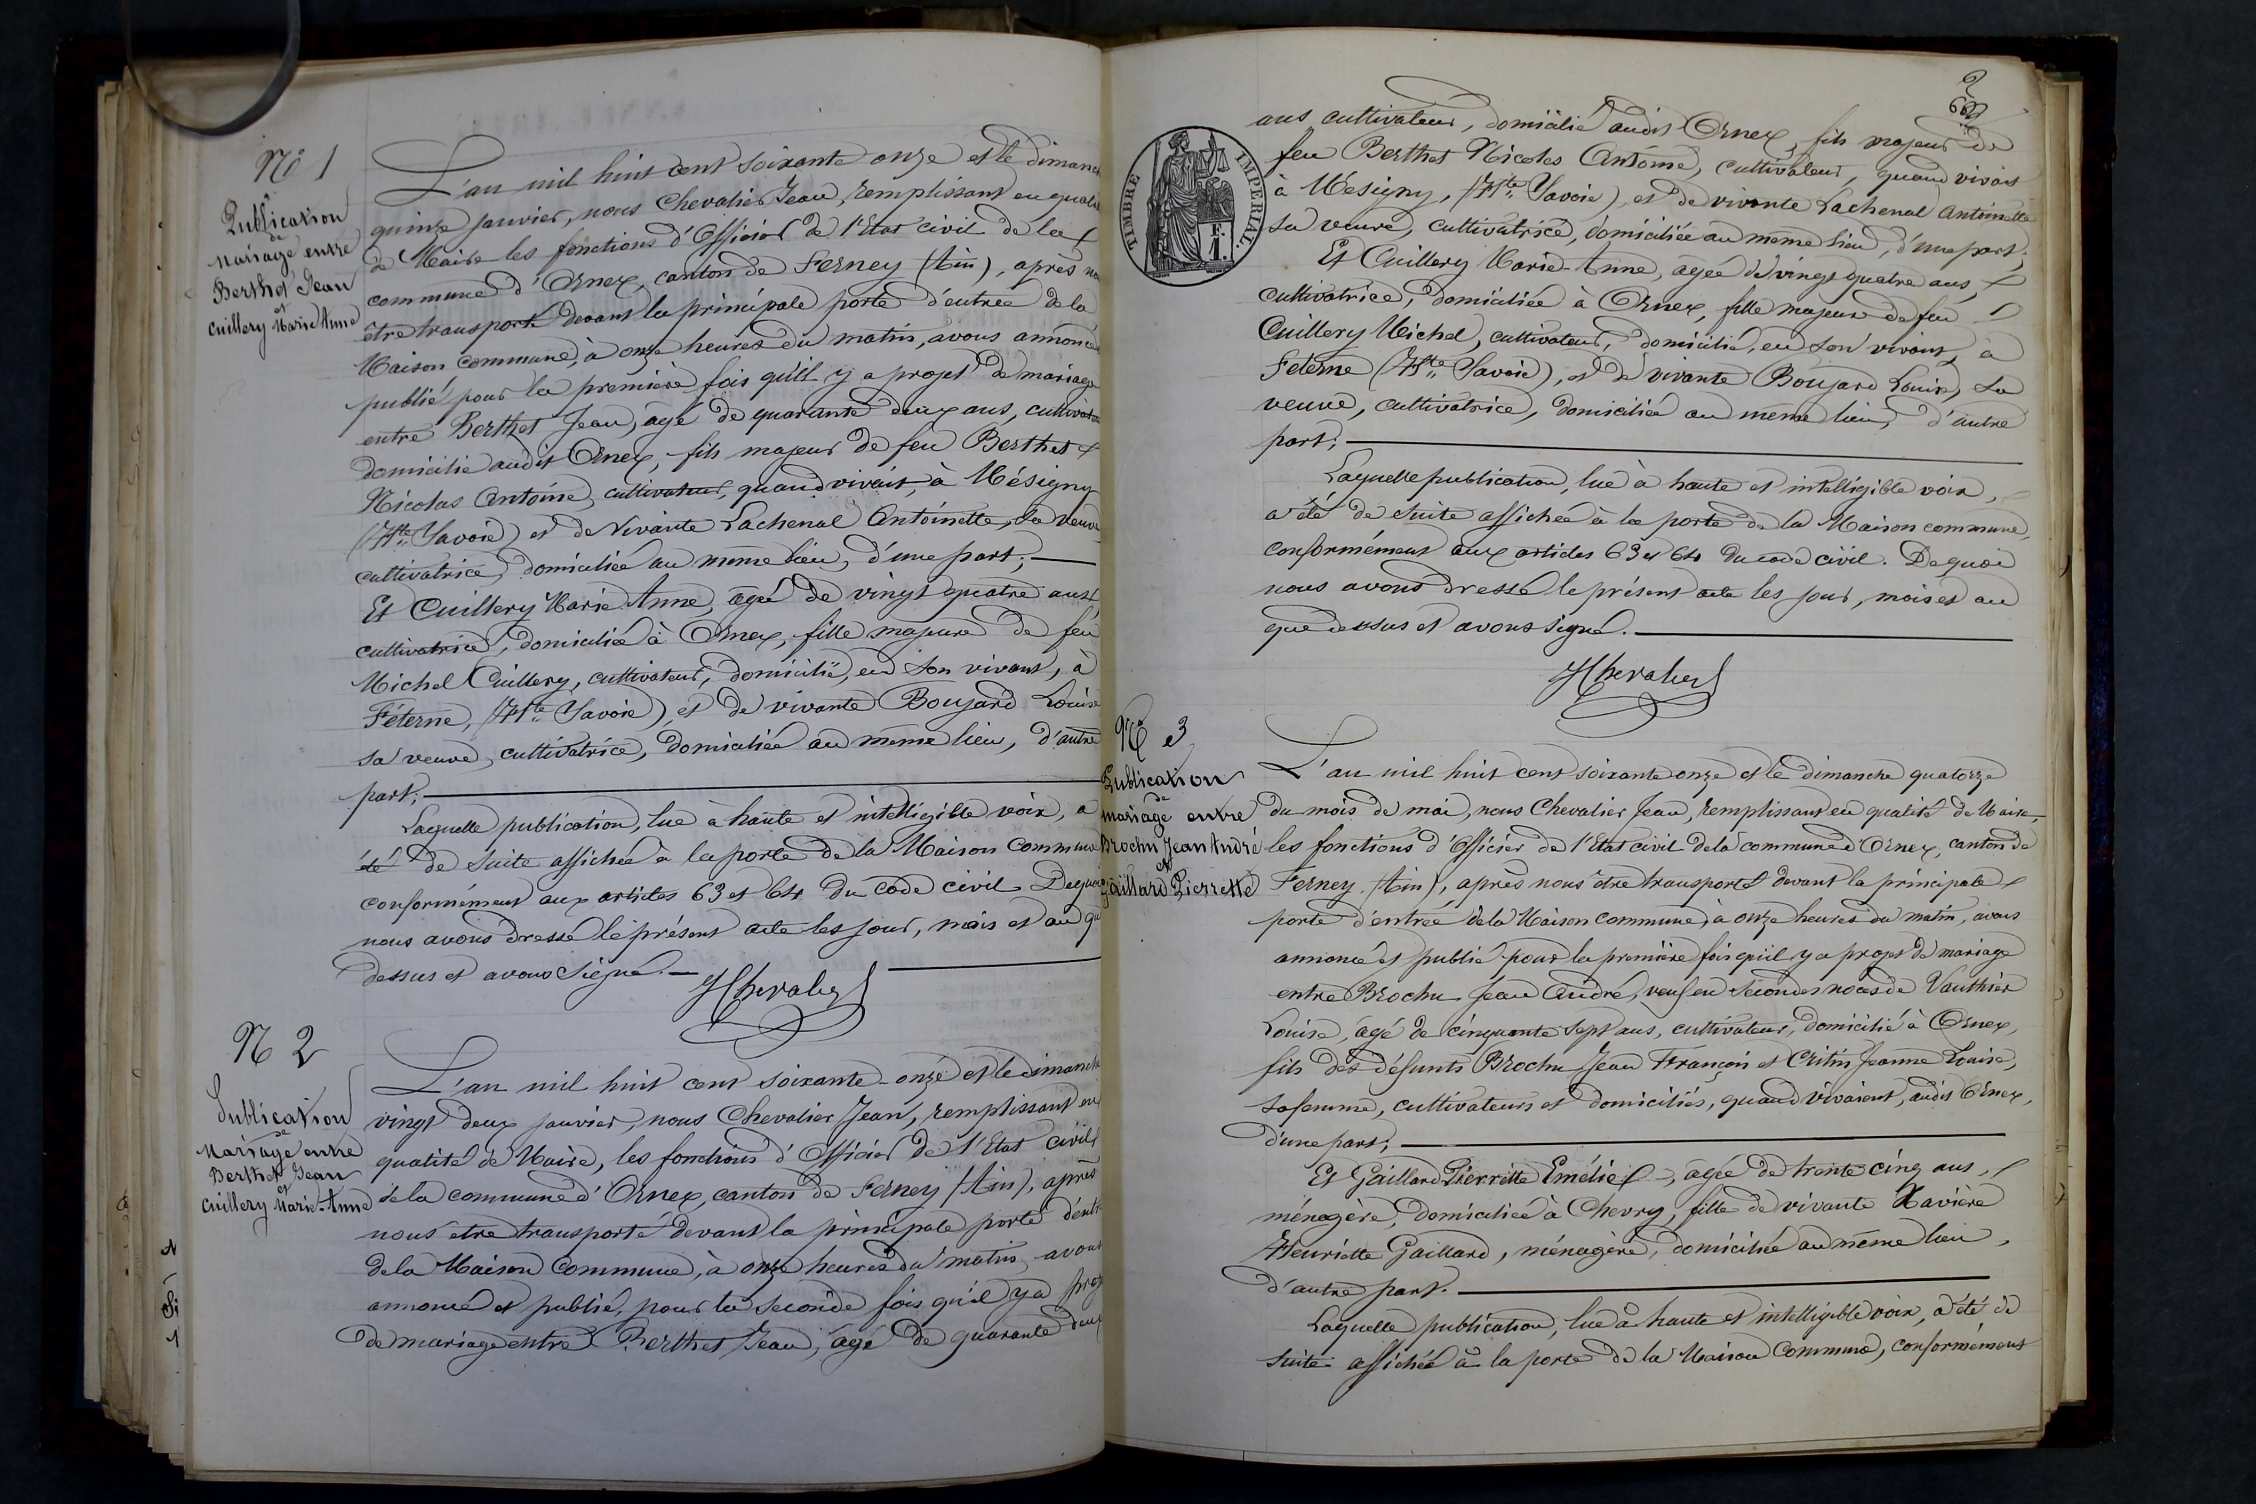 N° 1
Publication
de
mariage entre
Berthet Jean
et
Cuillery Marie Anne
L'an mil huit cent soixante onze et le dimanche
quinze janvier, nous Chevalier Jean, remplissant en qualité
de Maire les fonctions d'Officier de l'Etat civil de la
commune d'Ornex, canton de Ferney (Ain), après nous
être transporté devant la principale porte d'entrée de la
Maison commune, à onze heures du matin, avons annoncé
publié pour la première fois qu'il y a projet de mariage
entre Berthet Jean, âgé de quarante deux ans, cultivateur
domicilié audit Ornex, fils majeur de feu Berthet
Nicolas Antoine, cultivateur, quand vivait, à Mésigny
(Hte Savoie) et de vivante Lachenal Antoinette, sa veuve
cultivatrice, domiciliée au même lieu, d'une part;
Et Cuillery Marie Anne, âgée de vingt quatre ans,
cultivatrice, domiciliée à Ornex, fille majeure de feu
Michel Cuillery, cultivateur, domicilié, en son vivant, à
Féterne, (Hte Savoie) et de vivante Boujard Louise
sa veuve, cultivatrice, domiciliée au même lieu, d'autre
part;
Laquelle publication, lue à haute et intelligible voix, a
été de suite affichée à la porte de la Maison commune
conformément aux articles 63 et 64 du code civil. De quoi
nous avons dressé le présent acte les jour, mois et an que
dessus et avons signé.
JChevalier
N° 2
Publication
de
Mariage entre
Berthet Jean
et
Cuillery Marie-Anne
L'an mil huit cent soixante-onze et le dimanche
vingt deux janvier, nous Chevalier Jean, remplissant en
qualité de Maire, les fonctions d'Officier de l'Etat civil
de la commune d'Ornex, canton de Ferney (Ain), après
nous être transporté devant la principale porte d'entrée
de la Maison commune, à onze heures du matin, avons
annoncé et publié, pour la seconde fois qu'il y a projet
de mariage entre Berthet Jean, âgé de quarante deux
2
TIMBRE IMPERIAL.
F.
1.
ans cultivateur, domicilié audit Ornex, fils majeur de
feu Berthet Nicolas Antoine, cultivateur, quand vivait
à Mésigny, (Hte Savoie), et de vivante Lachenal Antoinette
sa veuve, cultivatrice, domiciliée au même lieu, d'une part;
Et Cuillery Marie-Anne, âgée de vingt quatre ans,
cultivatrice, domiciliée à Ornex, fille majeure de feu
Cuillery Michel, cultivateur, domicilié, en son vivant, à
Féterne (Hte Savoie), et de vivante Boujard Louise, sa
veuve, cultivatrice, domiciliée au même lieu, d'autre
part;
Laquelle publication, lue à haute et intelligible voix,
a été de suite affichée à la porte de la Maison commune,
conformément aux articles 63 et 64 du code civil. De quoi
nous avons dressé le présent acte les jour, mois et an
que dessus et avons signé.
JChevalier
N° 3
Publication
de
mariage entre
Brochu Jean André
et
Gaillard Pierrette
L'an mil huit cent soixante onze et le dimanche quatorze
du mois de mai, nous Chevalier Jean, remplissant en qualité de Maire,
les fonctions d'Officier de l'Etat civil de la commune d'Ornex, canton de
Ferney (Ain), après nous être transporté devant la principale
porte d'entrée de la Maison commune, à onze heures du matin, avons
annoncé et publié pour la première fois qu'il y a projet de mariage
entre Brochu Jean André, veuf en secondes noces de Vauthier
Louise, âgé de cinquante sept ans, cultivateur, domicilié à Ornex,
fils des défunts Brochu Jean François et Critin Jeanne Louise,
sa femme, cultivateurs et domiciliés, quand vivaient, audit Ornex,
d'une part;
Et Gaillard Pierrette Emélie, âgée de trente cinq ans,
ménagère, domiciliée à Chevry, fille de vivante Xavière
Henriette Gaillard, ménagère, domiciliée au même lieu,
d'autre part.
Laquelle publication, lue à haute et intelligible voix, a été de
suite affichée à la porte de la Maison Commune, conformément